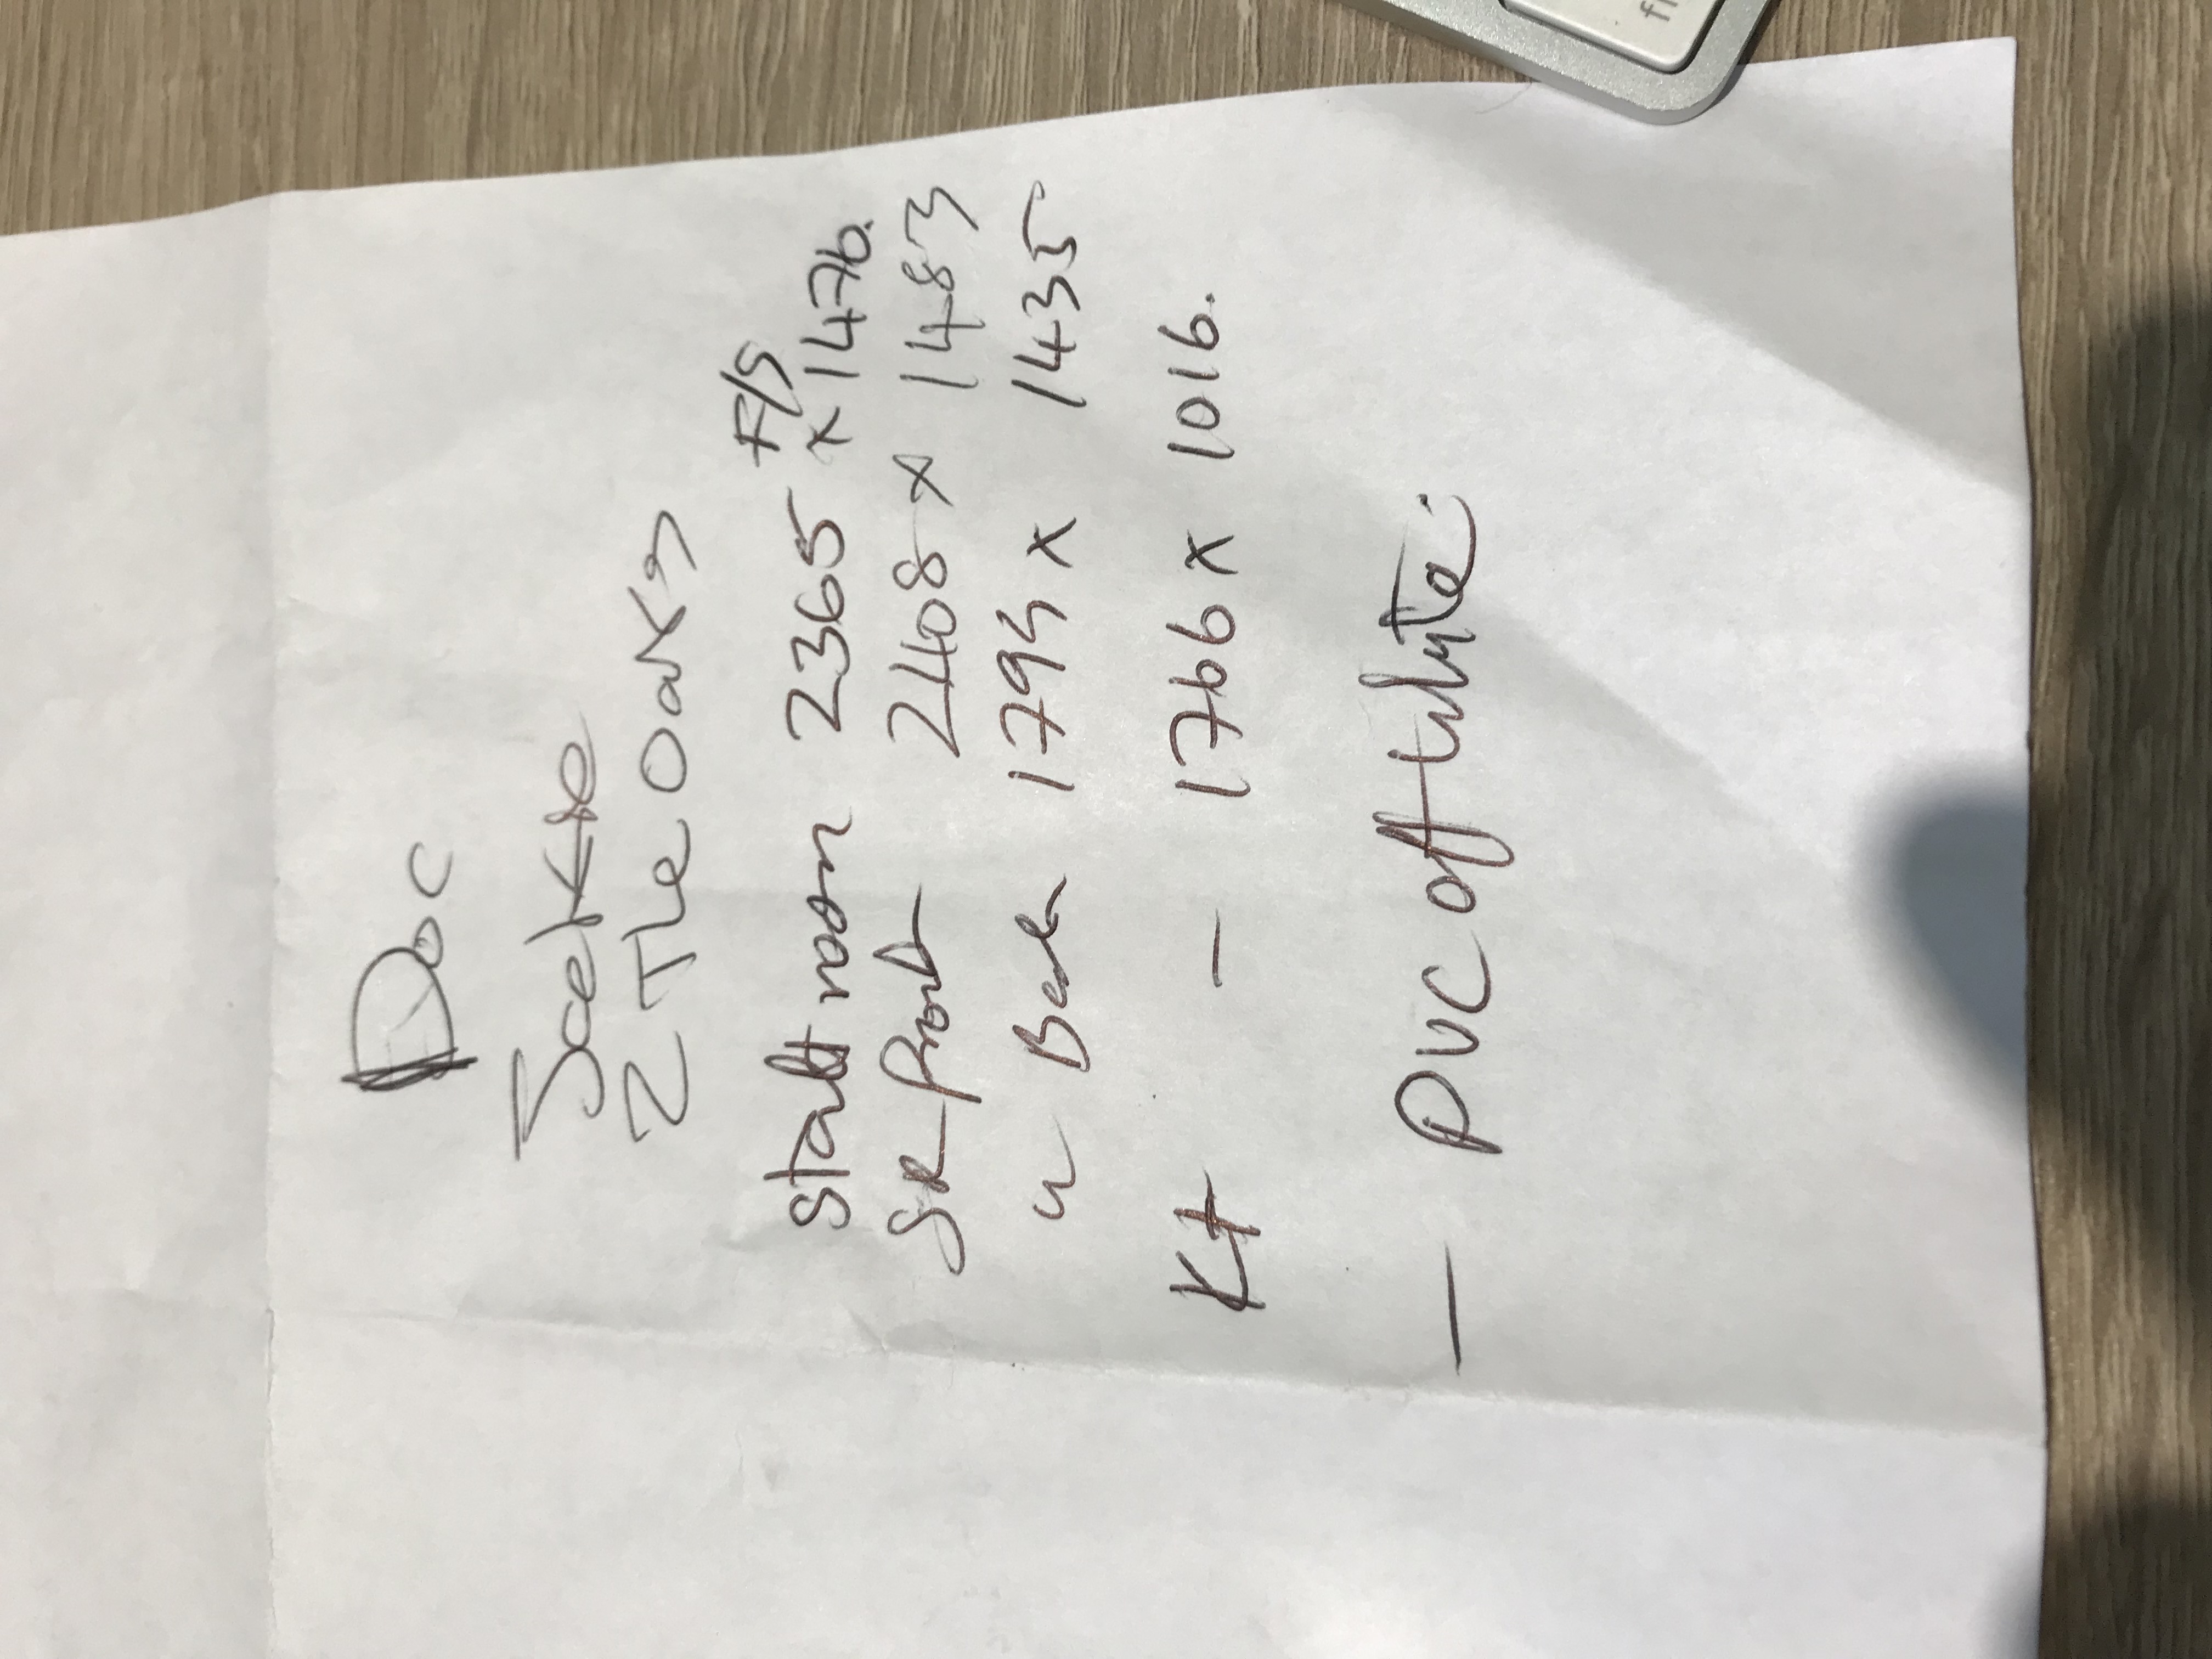 Doc
Jackie
2 The Oaks
F/S
Staff room 2365 x 1476.
SR Front 2408 x 1483
" Back 1795 x 1435
Kit - 1766 x 1016.
- PVC off white.
fn